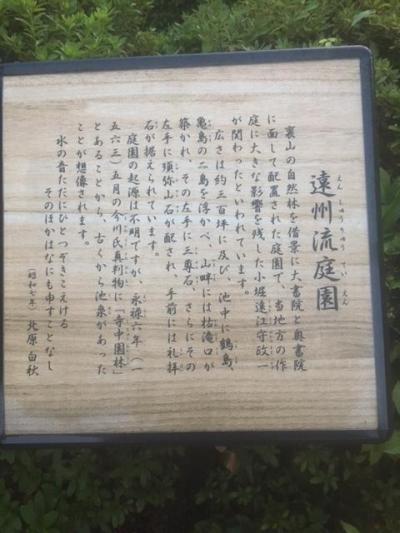 えんしゅうりゅうていえん
遠州流庭園
裏山の自然林を借景に大書院と奥書院
に面して配置された庭園で、当地方の作
庭に大きな影響を残した小堀遠江守政一
が関わったといわれています。
広さは約三百坪に及び、池中に鶴島、
亀島の二島を浮かべ、山畔には枯滝口が
築かれ、その左手に三尊石、さらにその
左手に須弥山石が配され、手前には礼拝
石が据えられています。
庭園の起源は不明ですが、永禄六年(一
五六三)五月の今川氏真判物に「寺中園林」
とあることから、古くから池泉があった
ことが想像されます。
水の音ただにひとつぞきこえける
そのほかはなにも申すことなし
(昭和七年) 北原白秋